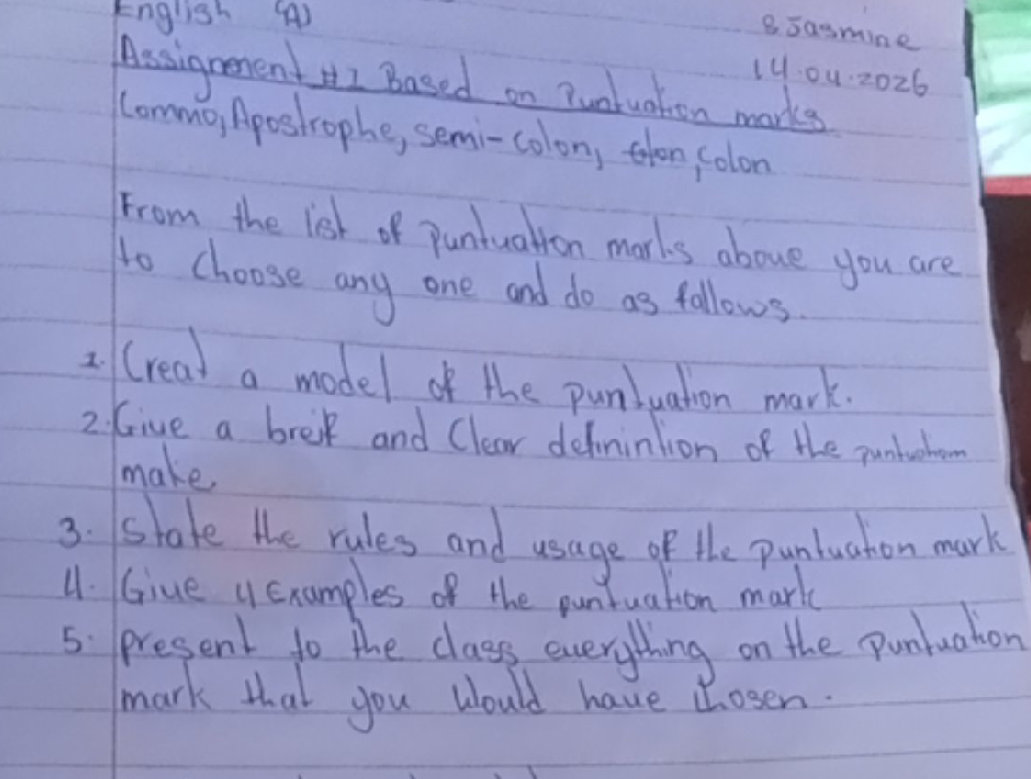 English (A)
8 Jasmine
14.04.2026
Assignment #1 Based on Puntuation marks
Comma, Apostrophe, semi-colon, colon
From the list of puntuation marks above you are
to choose any one and do as follows.
1. Creat a model of the puntuation mark.
2. Give a breif and Clear definintion of the puntuation
make
3. State the rules and usage of the puntuation mark
4. Give 4 Examples of the puntuation mark
5. present to the class everything on the puntuation
mark that you would have chosen.